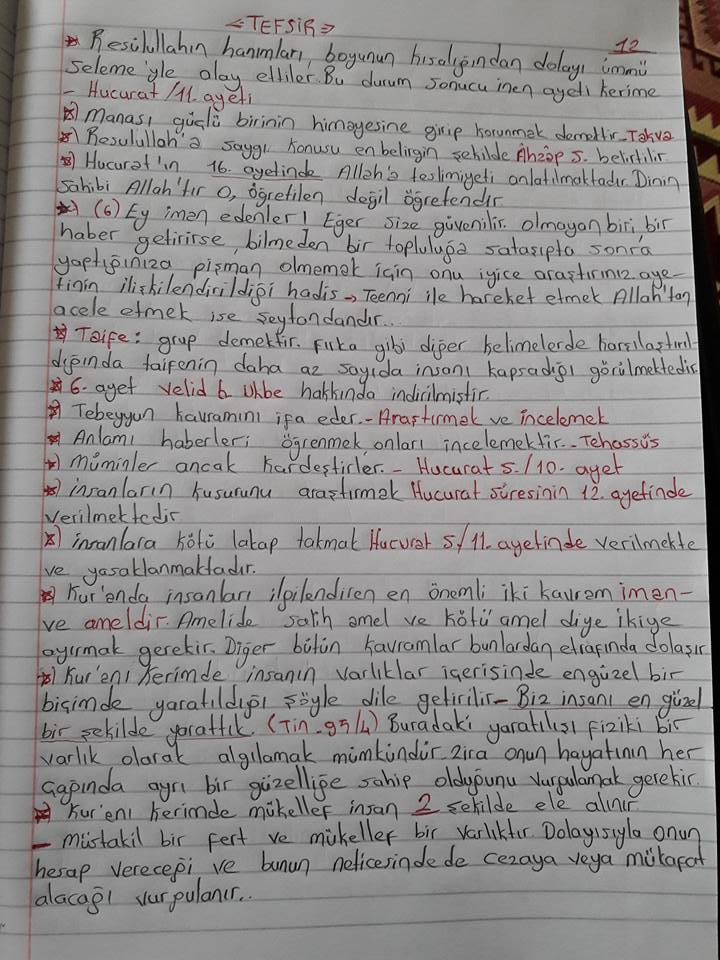 <TEFSİR>
12
* Resülullahın hanımları, boyunun kısalığından dolayı ümmü
seleme'yle alay ettiler. Bu durum sonucu inen ayeti kerime
- Hucurat/11. ayeti
*) Manası güçlü birinin himayesine girip korunmak demektir - Takva
*) Resulullah'a saygı konusu en belirgin şekilde Ahzap S. belirtilir
*) Hucurat'ın 16. ayetinde Allah'a teslimiyeti anlatılmaktadır. Dinin
Sahibi Allah'tır O, öğretilen değil öğretendir
*) (6) Ey iman edenler! Eğer size güvenilir olmayan biri, bir
haber getirirse, bilmeden bir topluluğa sataşıpta sonra
yaptığınıza pişman olmamak için onu iyice araştırınız aye-
tinin ilişkilendirildiği hadis → Teenni ile hareket etmek Allah'tan
acele etmek ise şeytandandır...
*) Taife: grup demektir. Fırka gibi diğer kelimelerde karşılaştırıl-
dığında taifenin daha az sayıda insanı kapsadığı görülmektedir
*) 6. ayet Velid b. Ukbe hakkında indirilmiştir.
*) Tebeyyun kavramını ifa eder. - Araştırmak ve incelemek
*) Anlamı haberleri öğrenmek, onları incelemektir. - Tehassüs
*) Müminler ancak kardeştirler. - Hucurat s./10. ayet
*) insanların kusurunu araştırmak Hucurat süresinin 12. ayetinde
verilmektedir
*) insanlara kötü lakap takmak Hucurat S/11. ayetinde verilmekte
ve yasaklanmaktadır.
*) Kur'anda insanları ilgilendiren en önemli iki kavram iman-
ve ameldir. Amelide salih amel ve kötü amel diye ikiye
ayırmak gerekir. Diğer bütün kavramlar bunlardan etrafında dolaşır
*) Kur'enı kerimde insanın varlıklar içerisinde engüzel bir
biçimde yaratıldığı şöyle dile getirilir - Biz insanı en güzel
bir şekilde yarattık (Tin - 95/4) Buradaki yaratılışı fiziki bir
varlık olarak algılamak mümkündür zira onun hayatının her
çağında ayrı bir güzelliğe sahip olduğunu vurgulamak gerekir.
*) Kur'enı kerimde mükellef insan 2 şekilde ele alınır
- müstakil bir fert ve mükellef bir varlıktır. Dolayısıyla onun
hesap vereceği ve bunun neticesindede cezaya veya mükafat
alacağı vurgulanır..